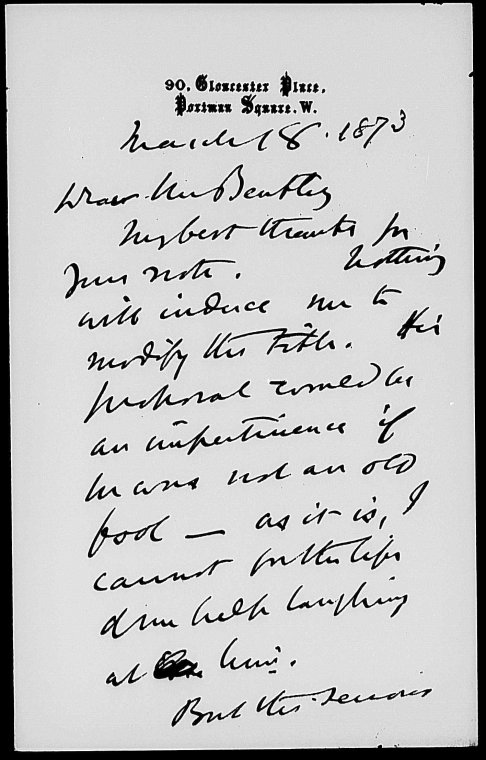 90, Gloucester Place,
Portman Square. W.
March 18. 1873
Dear Mr Bentley
My best thanks for
your note. Nothing
will induce me to
modify the title. His
proposal would be
an impertinence if
he was not an old
fool — as it is, I
cannot for the life
of me help laughing
at him.
But the serious